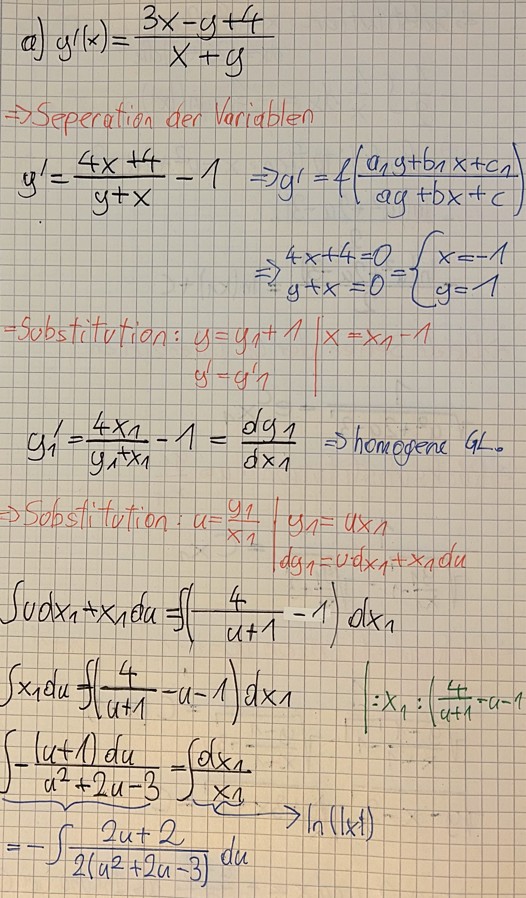 a) y'(x) = (3x - y + 4)/(x + y)
⇒ Seperation der Variablen
y' = (4x + 4)/(y + x) - 1 ⇒ y' = f((a₁y + b₁x + c₁)/(ay + bx + c))
⇒ 4x + 4 = 0 = { x = -1
y + x = 0 { y = 1
⇒ Substitution: y = y₁ + 1 | x = x₁ - 1
y' = y'₁
y₁' = 4x₁/(y₁ + x₁) - 1 = dy₁/dx₁ ⇒ homogene GL.
⇒ Substitution: u = y₁/x₁ | y₁ = ux₁
dy₁ = u·dx₁ + x₁du
∫udx₁ + x₁du = ∫(4/(u + 1) - 1) dx₁
∫x₁du = ∫(4/(u + 1) - u - 1) dx₁ | :x₁ : (4/(u + 1) - u - 1
∫ -(u + 1) du/(u² + 2u - 3) = ∫dx₁/x₁
→ ln(|x₁|)
= -∫(2u + 2)/(2(u² + 2u - 3)) du